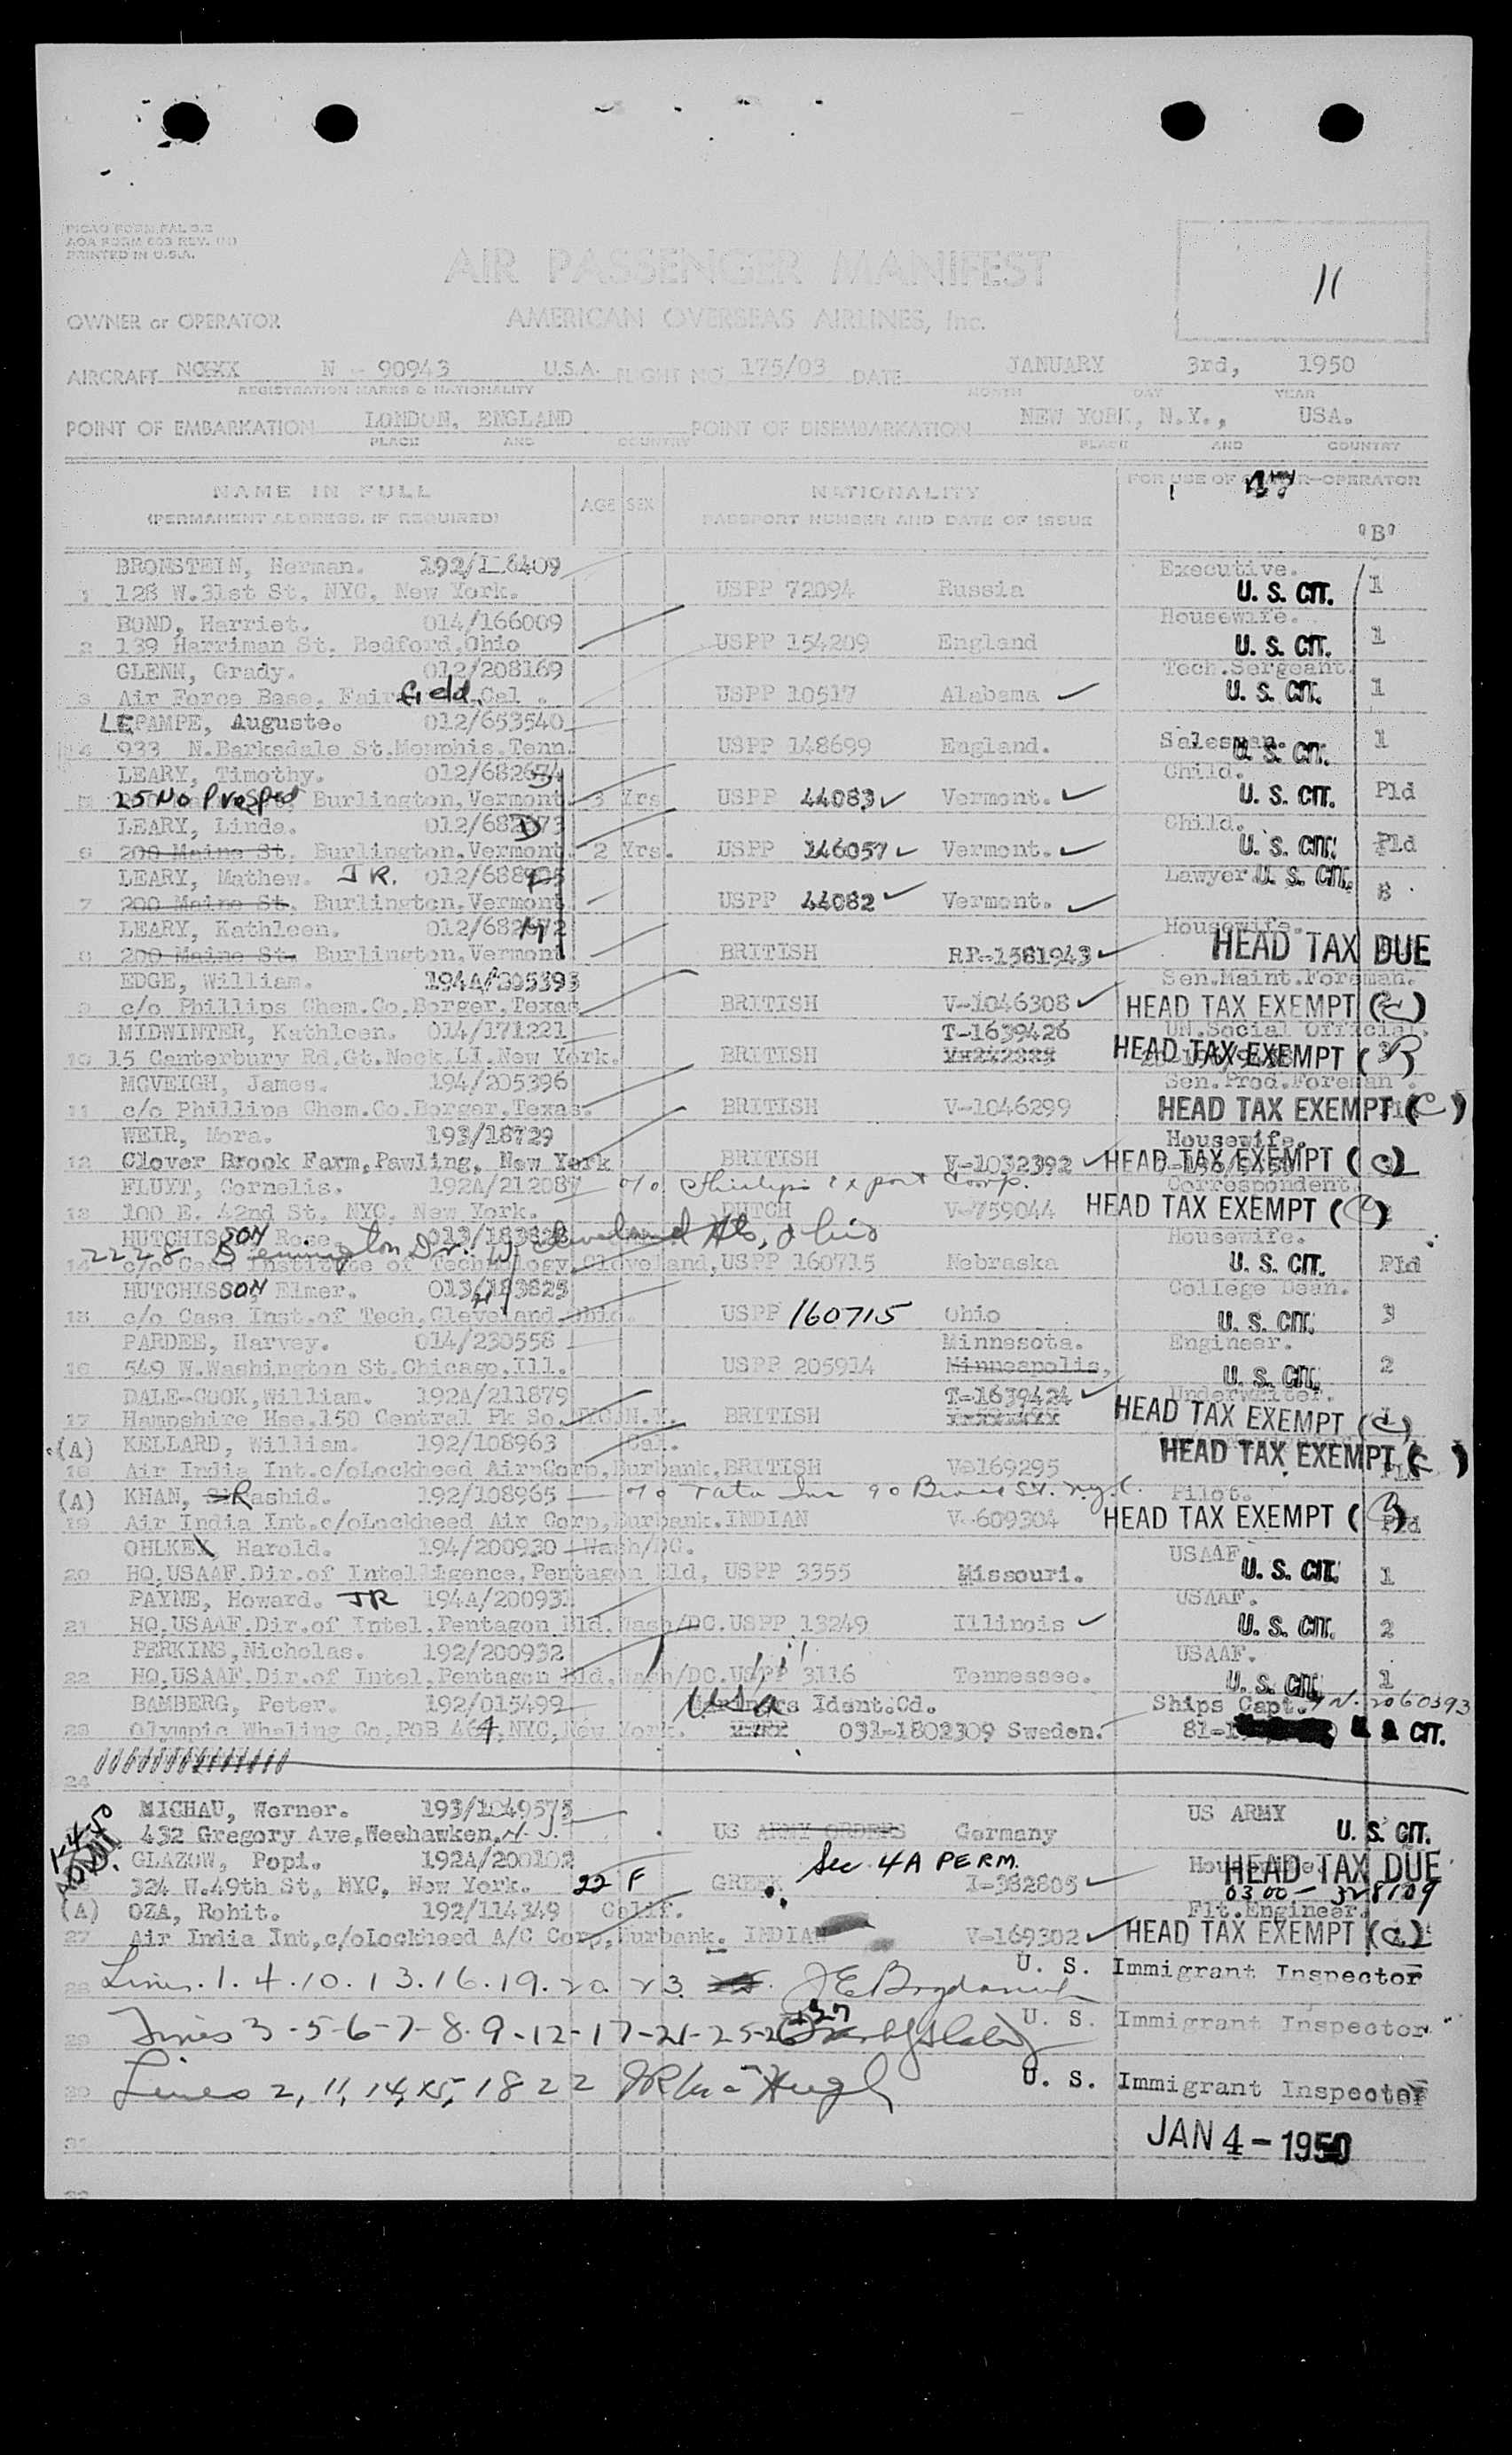 PICAO FORM PAL 3.2
AOA FORM 603 REV.
PRINTED IN U.S.A.
AIR PASSENGER MANIFEST
11
OWNER or OPERATOR AMERICAN OVERSEAS AIRLINES, Inc.
AIRCRAFT N - 90943 U.S.A. FLIGHT NO 175/03 DATE JANUARY 3rd, 1950
REGISTRATION MARKS & NATIONALITY MONTH DAY YEAR
POINT OF EMBARKATION LONDON, ENGLAND POINT OF DISEMBARKATION NEW YORK, N.Y., USA.
PLACE AND COUNTRY PLACE AND COUNTRY
NAME IN FULL AGE SEX NATIONALITY FOR USE OF OWNER-OPERATOR
(PERMANENT ADDRESS, IF REQUIRED) PASSPORT NUMBER AND DATE OF ISSUE
"B"
BRONSTEIN, Herman. 192/1 6409 Executive.
1 128 W.31st St, NYC, New York. USPP 72094 Russia U. S. CIT. 1
BOND, Harriet. 014/166009 Housewife.
2 139 Harriman St, Bedford,Ohio USPP 154209 England U. S. CIT. 1
GLENN, Grady. 012/208169 Tech.Sergeant.
3 Air Force Base, Fairfield, Cal. USPP 10517 Alabama U. S. CIT. 1
LEPAMPE, Auguste. 012/653540
4 933 N.Barksdale St.Memphis.Tenn. USPP 148699 England. Salesman. U. S. CIT. 1
LEARY, Timothy. 012/68267 Child.
25 No Prosped Burlington,Vermont 3 Yrs USPP 44083 Vermont. U. S. CIT. Pld
LEARY, Linda. 012/68 73 Child.
6 200 Maine St. Burlington.Vermont. 2 Yrs. USPP 146057 Vermont. U. S. CIT. Pld
LEARY, Mathew. JR. 012/688 Lawyer U. S. CIT.
7 200 Maine St. Burlington,Vermont USPP 44082 Vermont. 8
LEARY, Kathleen. 012/682 72 Housewife.
8 200 Maine St. Burlington,Vermont BRITISH RP-1581943 HEAD TAX DUE
EDGE, William. 194A/205393 Sen.Maint.Foreman.
9 c/o Phillips Chem.Co,Borger,Texas BRITISH V-1046308 HEAD TAX EXEMPT (C)
MIDWINTER, Kathleen. 014/171221 T-1639426 UN.Social Official.
10 15 Canterbury Rd,Gt.Neck LI.New York. BRITISH HEAD TAX EXEMPT (
MCVEIGH, James. 194/205396 Sen.Prod.Foreman.
11 c/o Phillips Chem.Co.Borger,Texas. BRITISH V-1046299 HEAD TAX EXEMPT (C)
WEIR, Mora. 193/18729 Housewife.
12 Clover Brook Farm,Pawling, New York BRITISH V-1032392 HEAD TAX EXEMPT (C)
FLUYT, Cornelis. 192A/212087 c/o Phillips Export Corp. Correspondent.
13 100 E. 42nd St, NYC. New York. DUTCH V-759044 HEAD TAX EXEMPT (C)
HUTCHISSON Rose. 013/183828 Housewife.
2228 Bennington Dr. Cleveland Hts, Ohio
14 c/o Case Institute of Technology Cleveland, USPP 160715 Nebraska U. S. CIT. Pld
HUTCHISSON Elmer. 013/183825 College Dean.
15 c/o Case Inst.of Tech,Cleveland.Ohio. USPP 160715 Ohio U. S. CIT. 3
PARDEE, Harvey. 014/230558 Minnesota. Engineer.
16 549 W.Washington St.Chicago,Ill. USPP 205914 Minneapolis, U. S. CIT. 2
DALE-COOK,William. 192A/211879 T-1639424 Underwriter.
17 Hampshire Hse.150 Central Pk So. NYC.N.Y. BRITISH HEAD TAX EXEMPT (C)
(A) KELLARD, William. 192/108963 Cal. HEAD TAX EXEMPT ( )
18 Air India Int.c/oLockheed AirpCorp,Burbank,BRITISH V-169295 Pld
(A) KHAN, Rashid. 192/108965 c/o Tata Inc 90 Broad St. nyc. Pilot.
19 Air India Int.c/oLockheed Air Corp,Burbank.INDIAN V-609304 HEAD TAX EXEMPT ( ) Pld
OHLKE, Harold. 194/200930 Wash/DC. USAAF
20 HQ.USAAF.Dir.of Intelligence,Pentagon Bld, USPP 3355 Missouri. U. S. CIT. 1
PAYNE, Howard. JR 194A/200931 USAAF.
21 HQ.USAAF.Dir.of Intel.Pentagon Bld.Wash/DC.USPP 13249 Illinois U. S. CIT. 2
PERKINS,Nicholas. 192/200932 USAAF.
22 HQ.USAAF.Dir.of Intel,Pentagon Bld,Wash/DC.USPP 3116 Tennessee. U. S. CIT. 1
BAMBERG, Peter. 192/015492 USA Ident.Cd. Ships Capt. N. 2060393
23 Olympic Whaling Co,POB 464,NYC,New York. 031-1802309 Sweden. 81-1 CIT.
24
MICHAU, Werner. 193/1049575 US ARMY
432 Gregory Ave,Weehawken,N.J. US ARMY ORDERS Germany U. S. CIT.
1-4-50
GLAZOW, Popi. 192A/200102 Sec. 4A PERM. HEAD TAX DUE
324 W.49th St, NYC, New York. 22 F GREEK I-382805 0300-328109
(A) OZA, Rohit. 192/114349 Calif. Flt.Engineer.
27 Air India Int,c/oLockheed A/C Corp,Burbank. INDIAN V-169302 HEAD TAX EXEMPT (C)
28 Lines.1.4.10.13.16.19.20.23. U. S. Immigrant Inspector
29 Lines 3-5-6-7-8-9-12-17-21-25-26 +27 U. S. Immigrant Inspector
30 Lines 2, 11, 14, 15, 18 22 U. S. Immigrant Inspector
31
JAN 4-1950